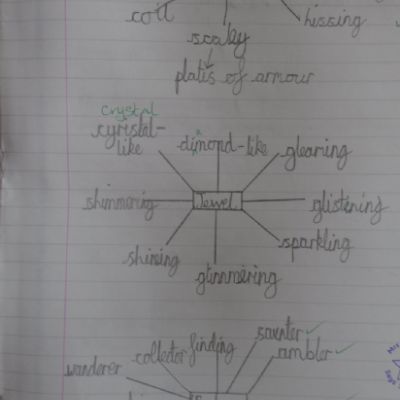 coil
hissing
scaly
platis of armour
crystal
cyristal-
like
dimond-like
a
glearing
shimmerig
Jewel
glistening
shining
sparkling
glimmering
saunter ✓
finding
collector
ambler ✓
wanderer